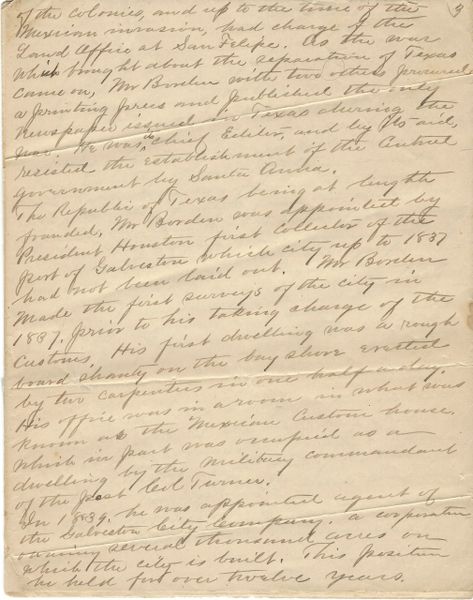 of the colonies, and up to the time of the
Mexican invasion, had charge of the
Land Office at San Felipe. As the war
which brought about the separation of Texas
came on, Mr Borden with two others procured
a printing press and published the only
newspaper issued in Texas during the
war. He was its chief Editor, and by its aid,
resisted the establishment of the Central
government by Santa Anna.
The Republic of Texas being at length
founded, Mr Borden was appointed by
President Houston first collector of the
port of Galveston which city up to 1837
had not been laid out. Mr Borden
made the first surveys of the city in
1837, prior to his taking charge of the
Customs. His first dwelling was a rough
board shanty on the bay shore erected
by two carpenters in one half a day.
His office was in a room in what was
known as the Mexican Custom house.
which in part was occupied as a
dwelling by the military commandant
of the post Col Turner.
In 1839, he was appointed agent of
the Galveston City Company, a corporation
owning several thousand acres on
which the city is built. This position
he held for over twelve years.